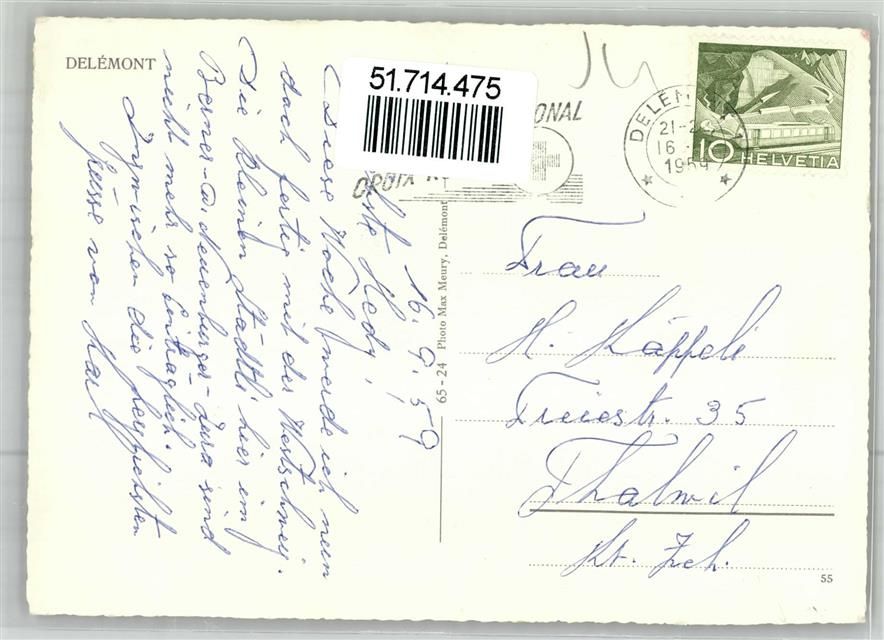 DELÉMONT
51.714.475
ONAL
CROIX-R
DELÉM
21-2
16
1959
10 HELVETIA
16. 9. 59
Hedy,
Diese Woche werde ich nun
doch fertig mit der Westschweiz.
Die kleinen Städtli hier im
Berner- u. Neuenburger-Jura sind
nicht mehr so einträglich.
Inzwischen die herzlichsten
Grüsse von Karl
65-24 Photo Max Meury, Delémont
Frau
H. Käppeli
Freiestr. 35
Thalwil
Kt. Zch.
55